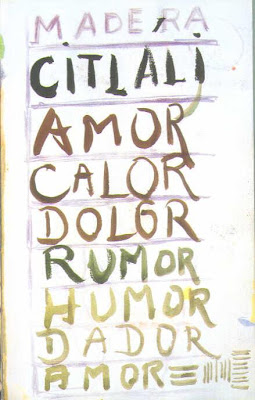 MADERA
CITLALI
AMOR
CALOR
DOLOR
RUMOR
HUMOR
DADOR
AMOR